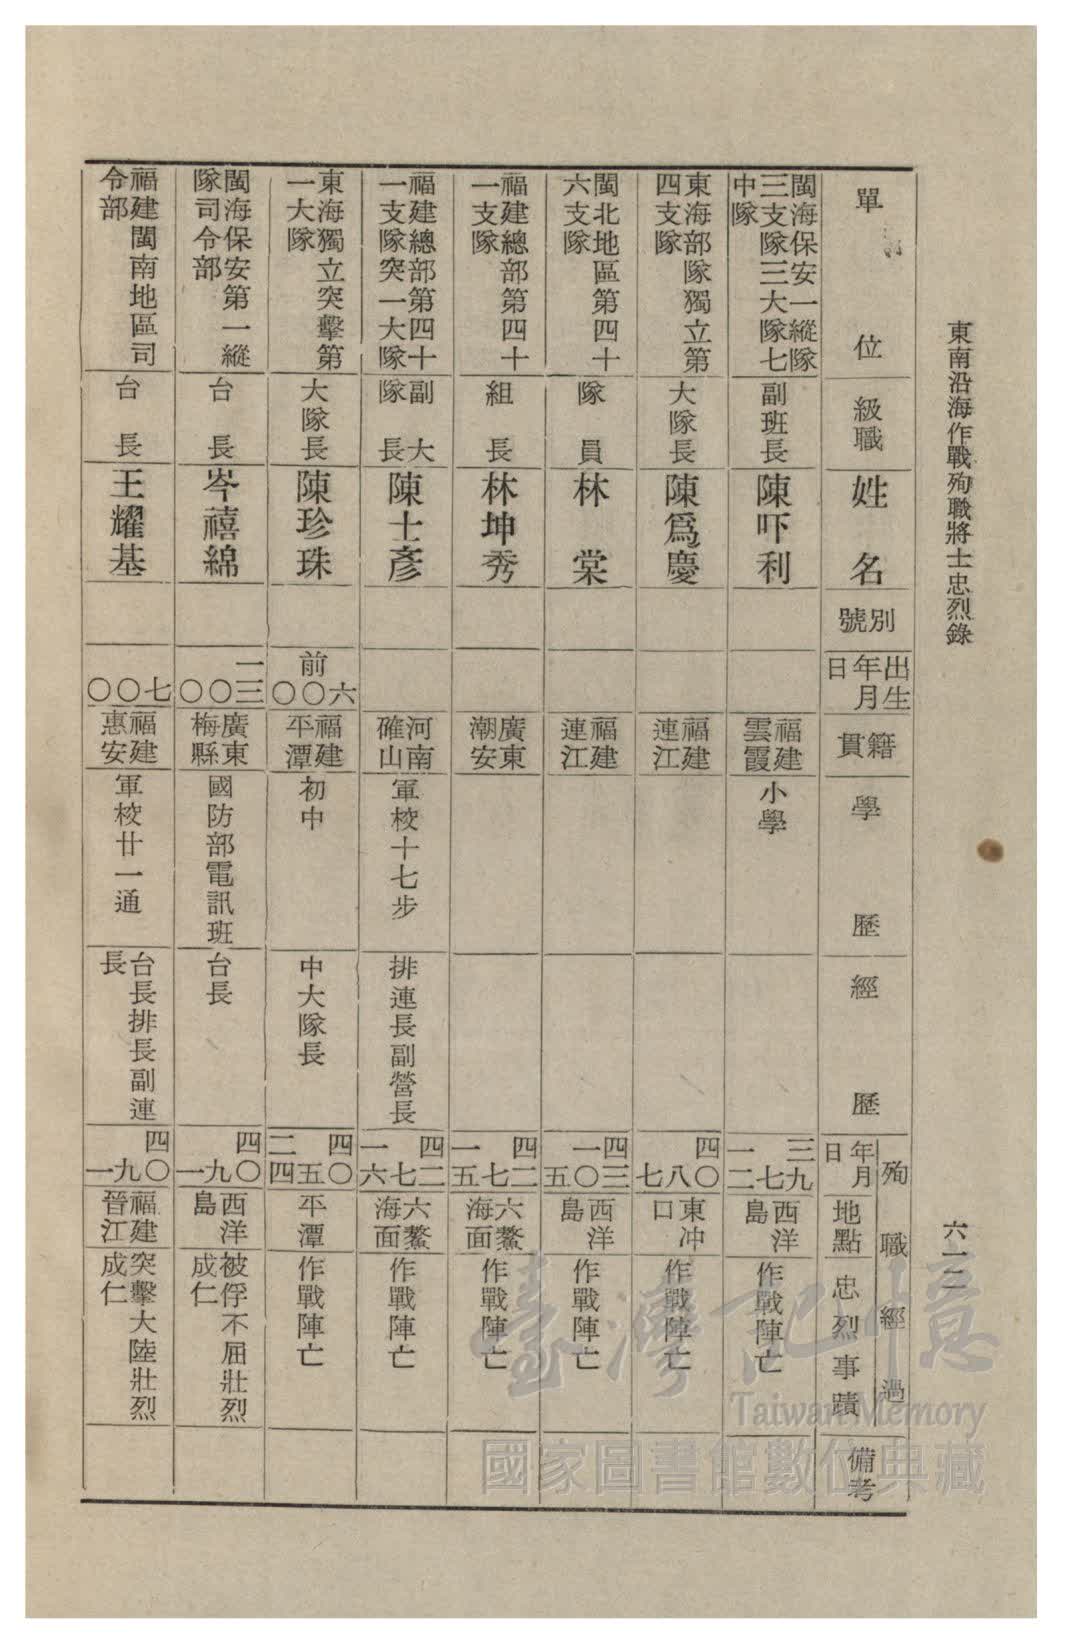 東南沿海作戰殉職將士忠烈錄
六一二
單位
級職
姓名
別號
出生
年月
日
籍貫
學歷
經歷
殉職經過
年月
日
地點
忠烈事蹟
備考
閩海保安一縱隊
三支隊三大隊七
中隊
副班長
陳吓利
福建
雲霞
小學
三
九
七
一
二
西洋
島
作戰陣亡
東海部隊獨立第
四支隊
大隊長
陳為慶
福建
連江
四
〇
八
七
東冲
口
作戰陣亡
閩北地區第四十
六支隊
隊員
林棠
福建
連江
四
三
〇
一
五
西洋
島
作戰陣亡
福建總部第四十
一支隊
組長
林坤秀
廣東
潮安
四
二
七
一
五
六鰲
海面
作戰陣亡
福建總部第四十
一支隊突一大隊
副大
隊長
陳士彥
河南
確山
軍校十七步
排連長副營長
四
二
七
一
六
六鰲
海面
作戰陣亡
東海獨立突擊第
一大隊
大隊長
陳珍珠
前
六〇〇
福建
平潭
初中
中大隊長
四
〇
五
二
四
平潭
作戰陣亡
閩海保安第一縱
隊司令部
台長
岑禧綿
一
三〇〇
廣東
梅縣
國防部電訊班
台長
四
〇
九
一
西洋
島
被俘不屈壯烈
成仁
福建閩南地區司
令部
台長
王耀基
七〇〇
福建
惠安
軍校廿一通
台長排長副連
長
四
〇
九
一
福建
晉江
突擊大陸壯烈
成仁
臺灣記憶
Taiwan Memory
國家圖書館數位典藏